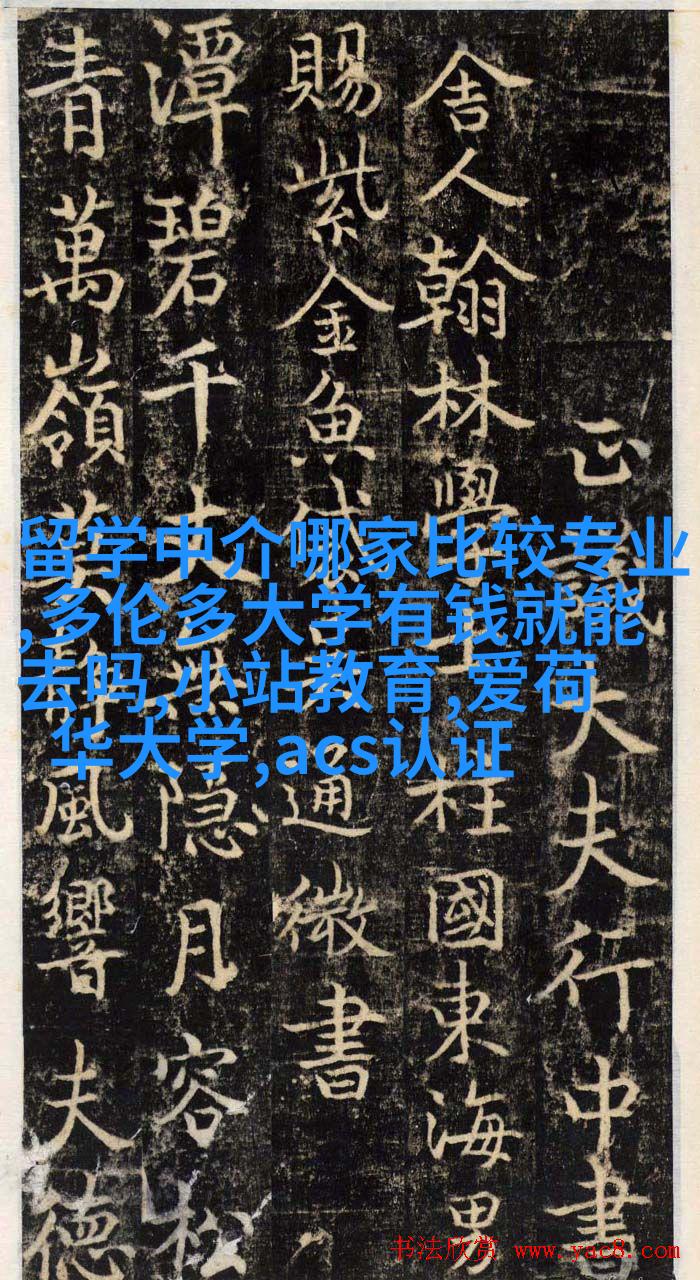 正大夫行中書
舍人翰林學柱國東海男
賜紫金魚袋通微書
潭碧千丈隱月容松
青萬嶺風響夫德
留学中介哪家比较专业
,多伦多大学有钱就能
去吗,小站教育,爱荷
华大学,acs认证
书法欣赏 www.yac8.com